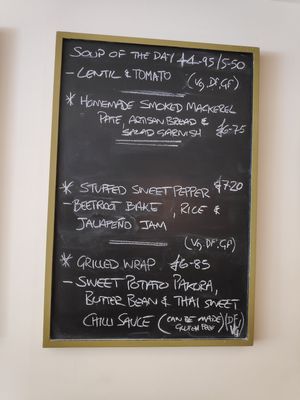 SOUP OF THE DAY £4-95/5-50
- LENTIL & TOMATO (VG, DF, GF)
* HOMEMADE SMOKED MACKEREL
PATE, ARTISAN BREAD &
SALAD GARNISH £6-75
* STUFFED SWEET PEPPER £7-20
- BEETROOT BAKE, RICE &
JALAPEÑO JAM
(VG, DF, GF)
* GRILLED WRAP £6-85
- SWEET POTATO PAKORA,
BUTTER BEAN & THAI SWEET
CHILLI SAUCE (CAN BE MADE GLUTEN FREE) (DF,